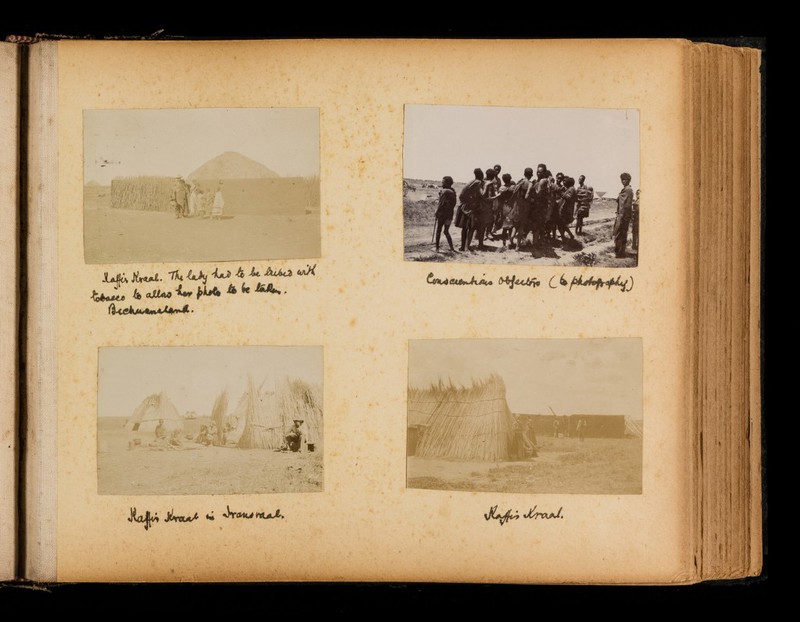 Kaffir Kraal. The lady had to be bribed with
tobacco to allow her photo to be taken.
Bechuanaland.
Conscientious Objectors (to photography)
Kaffir Kraal in Transvaal.
Kaffir Kraal.